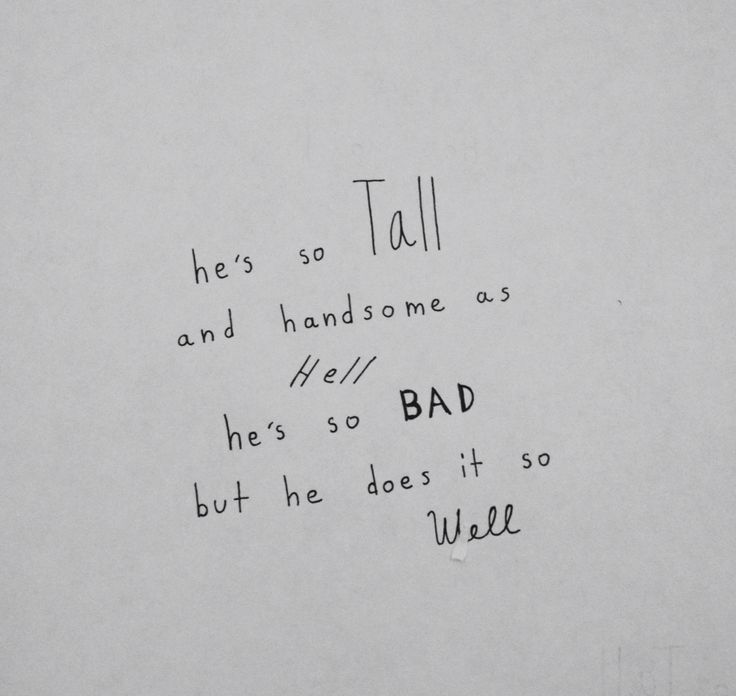 he's so Tall
and handsome as
Hell
he's so BAD
but he does it so
Well